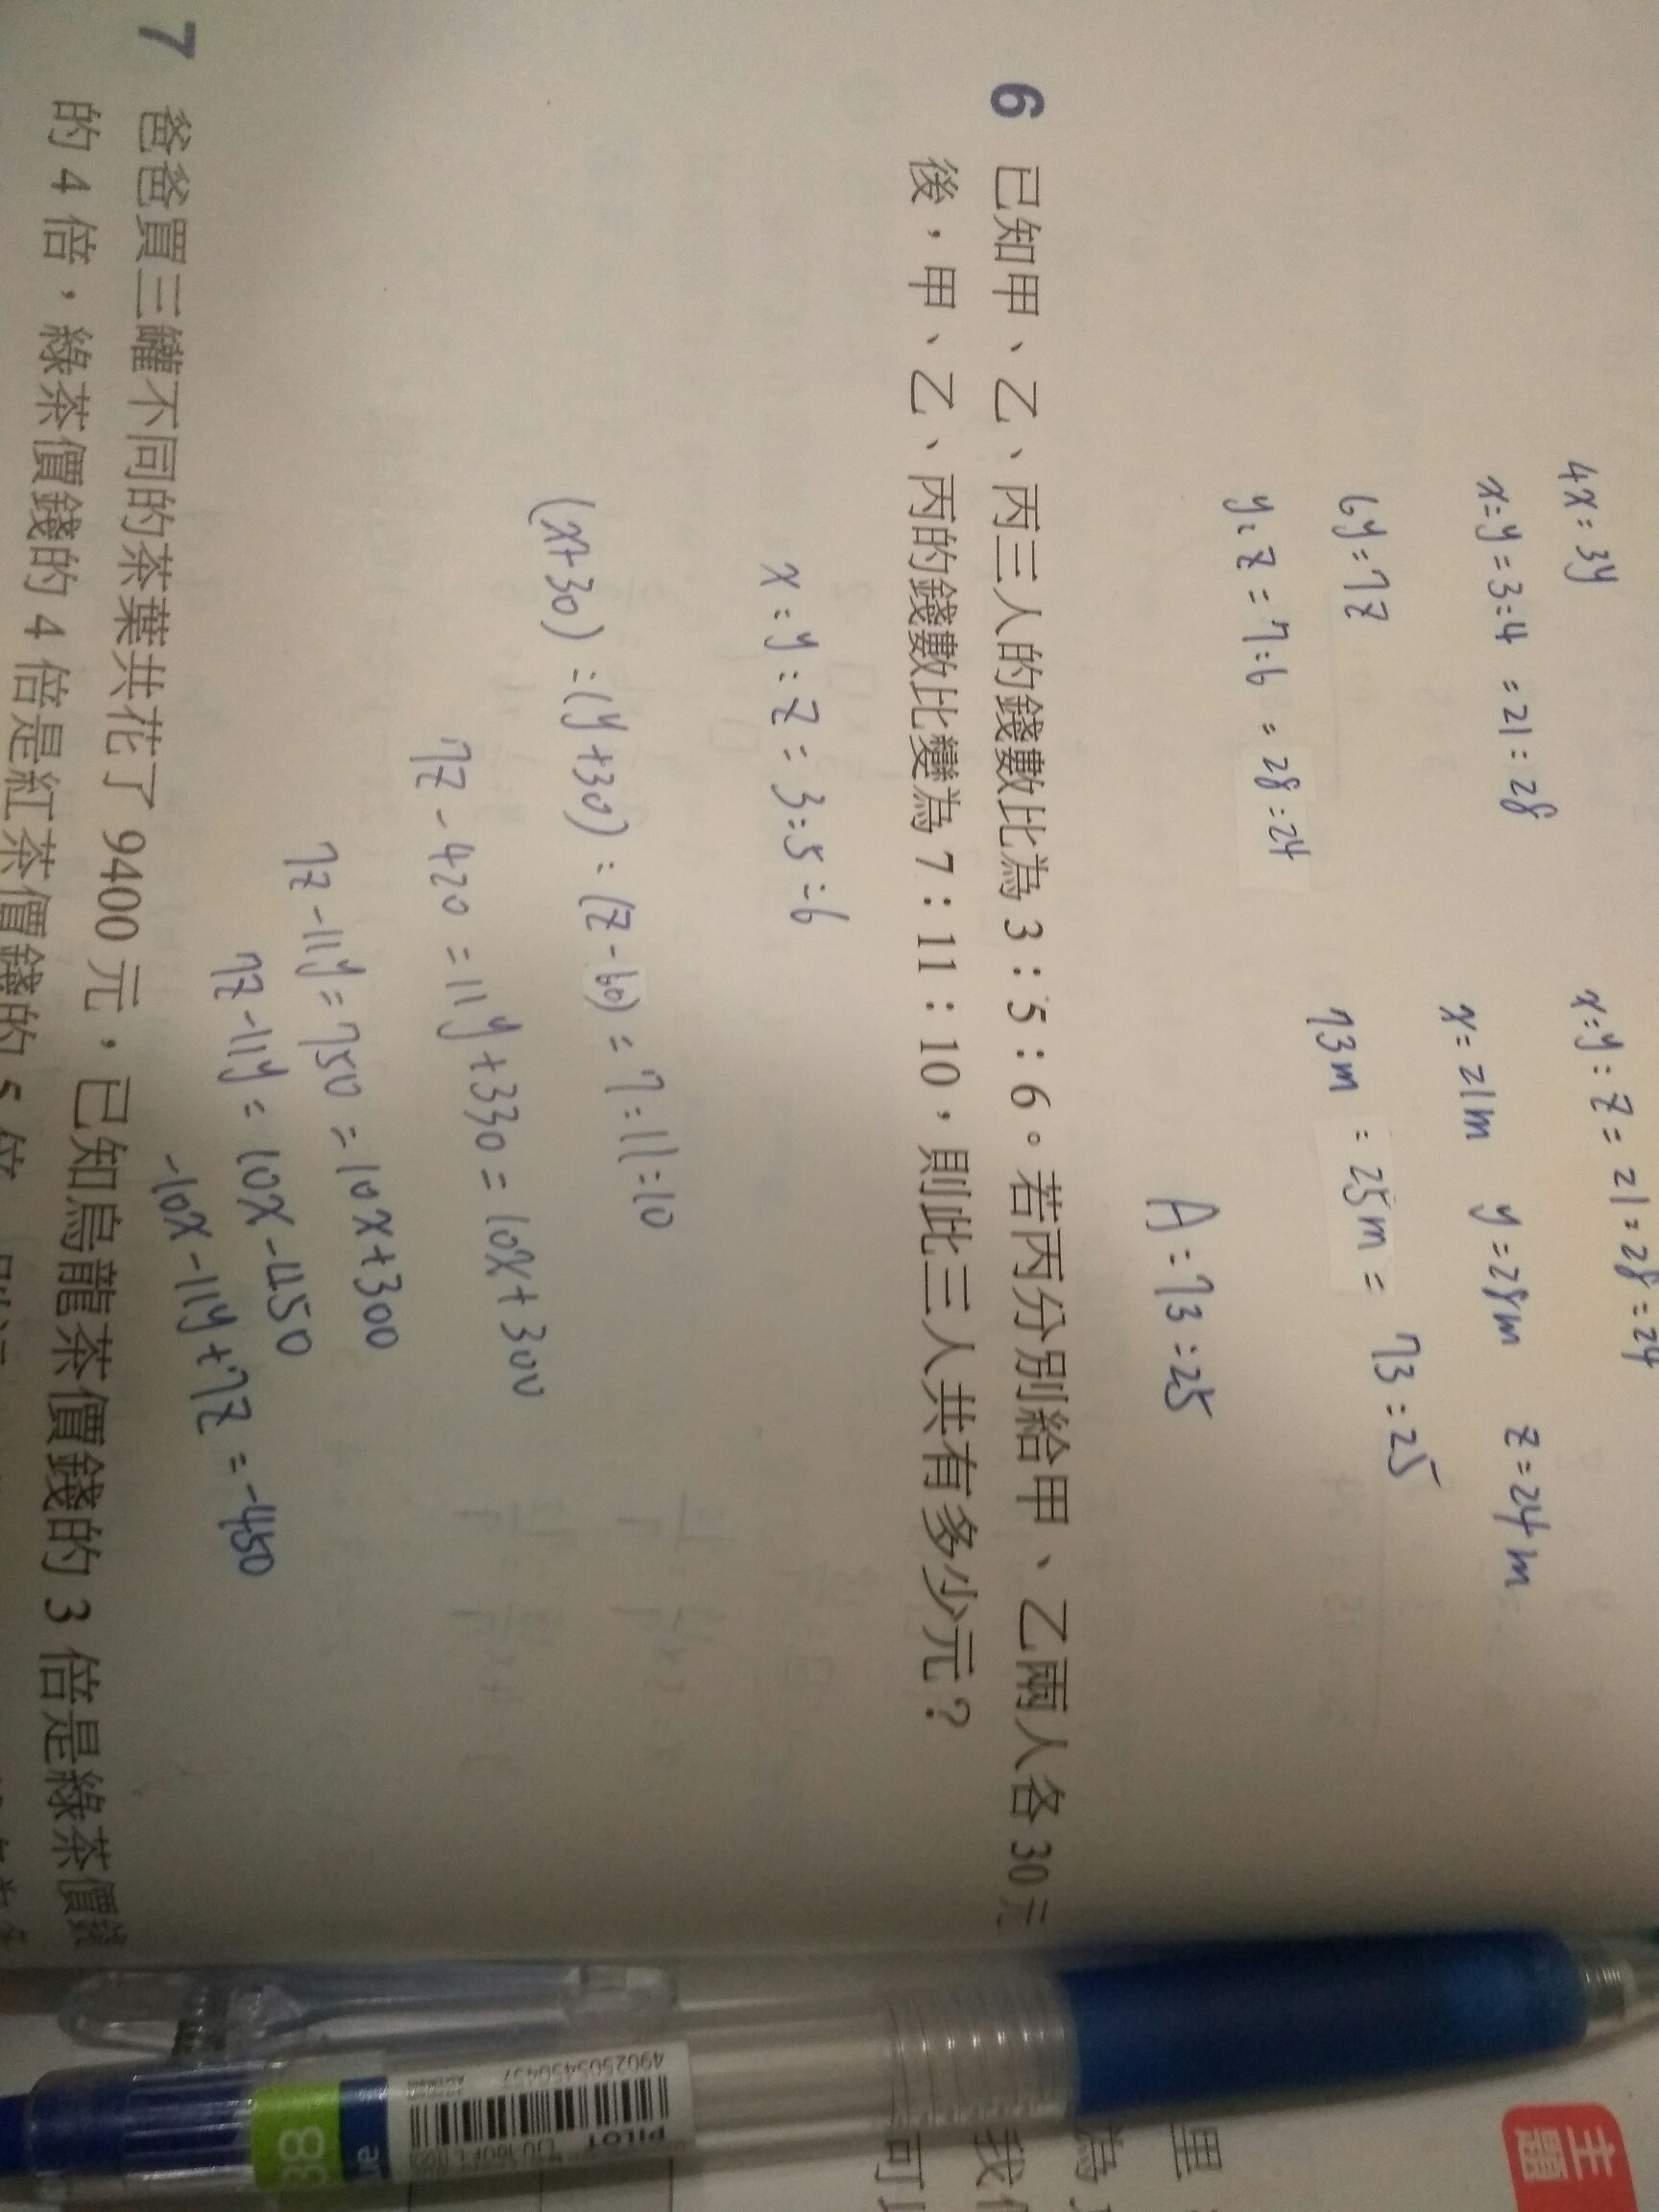 4x=3y
x:y=3:4 =21:28
6y=7z
y:z=7:6 =28:24
x:y:z=21:28:24
x=21m y=28m z=24m
73m = 25m = 73:25
A:73:25
6 已知甲、乙、丙三人的錢數比為 3:5:6。若丙分別給甲、乙兩人各 30 元
後,甲、乙、丙的錢數比變為 7:11:10,則此三人共有多少元?
x:y:z=3:5:6
(x+30):(y+30):(z-60)=7:11:10
7z-420=11y+330=10x+300
7z-11y=750=10x+300
7z-11y=10x-450
-10x-11y+7z=-450
7 爸爸買三罐不同的茶葉共花了 9400 元,已知烏龍茶價錢的 3 倍是綠茶價錢
的 4 倍,綠茶價錢的 4 倍是紅茶價錢的 5 倍
主題
里
為
我們
可以
PILOT
4902505450457
38